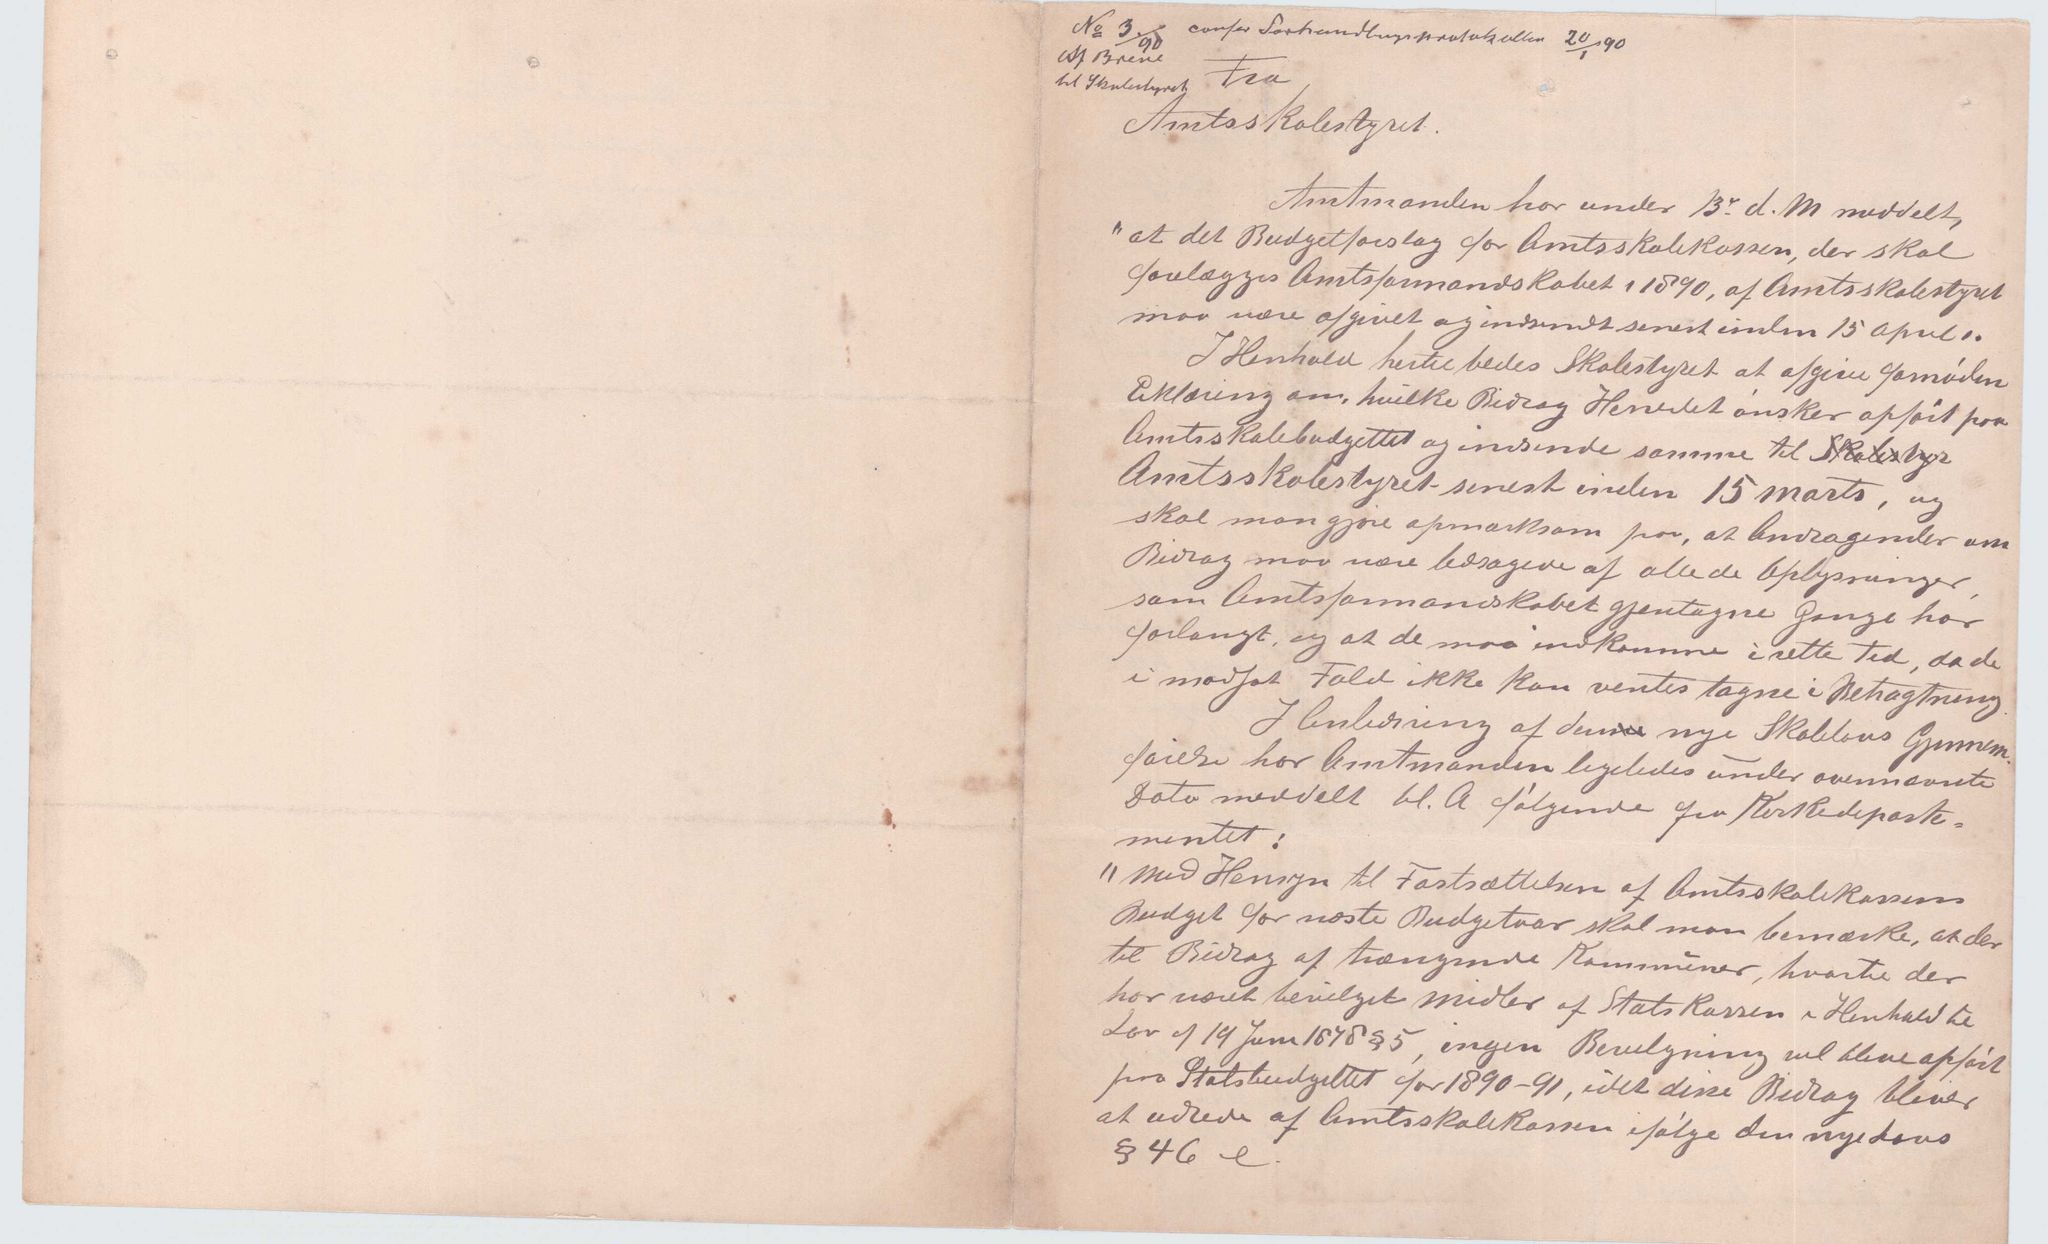 No 3/90 confer Forhandlingsprotokollen 20/1 90
Af Breve
til Skolestyret
Fra
Amtsskolestyret.
Amtmanden har under 13de d. M meddelt,
"at det Budgetforslag for Amtsskolekassen, der skal
forelægges Amtsformandskabet i 1890, af Amtsskolestyret
maa være afgivet og indsendt senest inden 15 April".
I Henhold hertil bedes Skolestyret at afgive fornøden
Erklæring om, hvilke Bidrag Herredet ønsker opført paa
Amtsskolebudgettet og indsende samme til Skolestyr
Amtsskolestyret senest inden 15 Marts, og
skal man gjøre opmærksom paa, at Andragender om
Bidrag maa være ledsagede af alle de Oplysninger,
som Amtsformandskabet gjentagne Gange har
forlangt, og at de maa indkomme i rette Tid, da de
i modsat Fald ikke kan ventes tagne i Betragtning.
I Anledning af den nye Skolelovs Gjennem-
førelse har Amtmanden ligeledes under ovennævnte
Dato meddelt bl. A følgende fra Kirkedeparte-
mentet:
"Med Hensyn til Fastsættelsen af Amtsskolekassens
Budget for næste Budgetaar skal man bemærke, at der
til Bidrag af trængende Kommuner, hvortil der
har været bevilget Midler af Statskassen i Henhold til
Lov af 19 Juni 1878 § 5, ingen Bevilgning vil blive opført
paa Statsbudgettet for 1890-91, idet disse Bidrag bliver
at udrede af Amtsskolekassen ifølge den nye Lovs
§ 46 e.